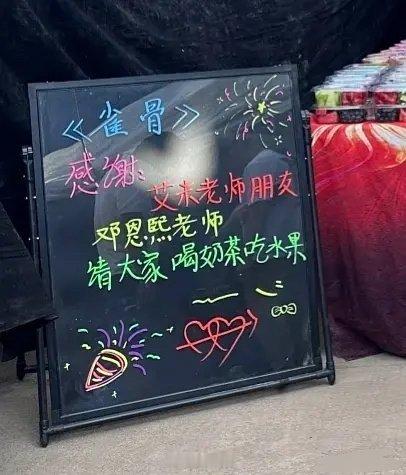 《雀骨》
感谢：
艾米老师朋友
邓恩熙老师
请大家喝奶茶吃水果